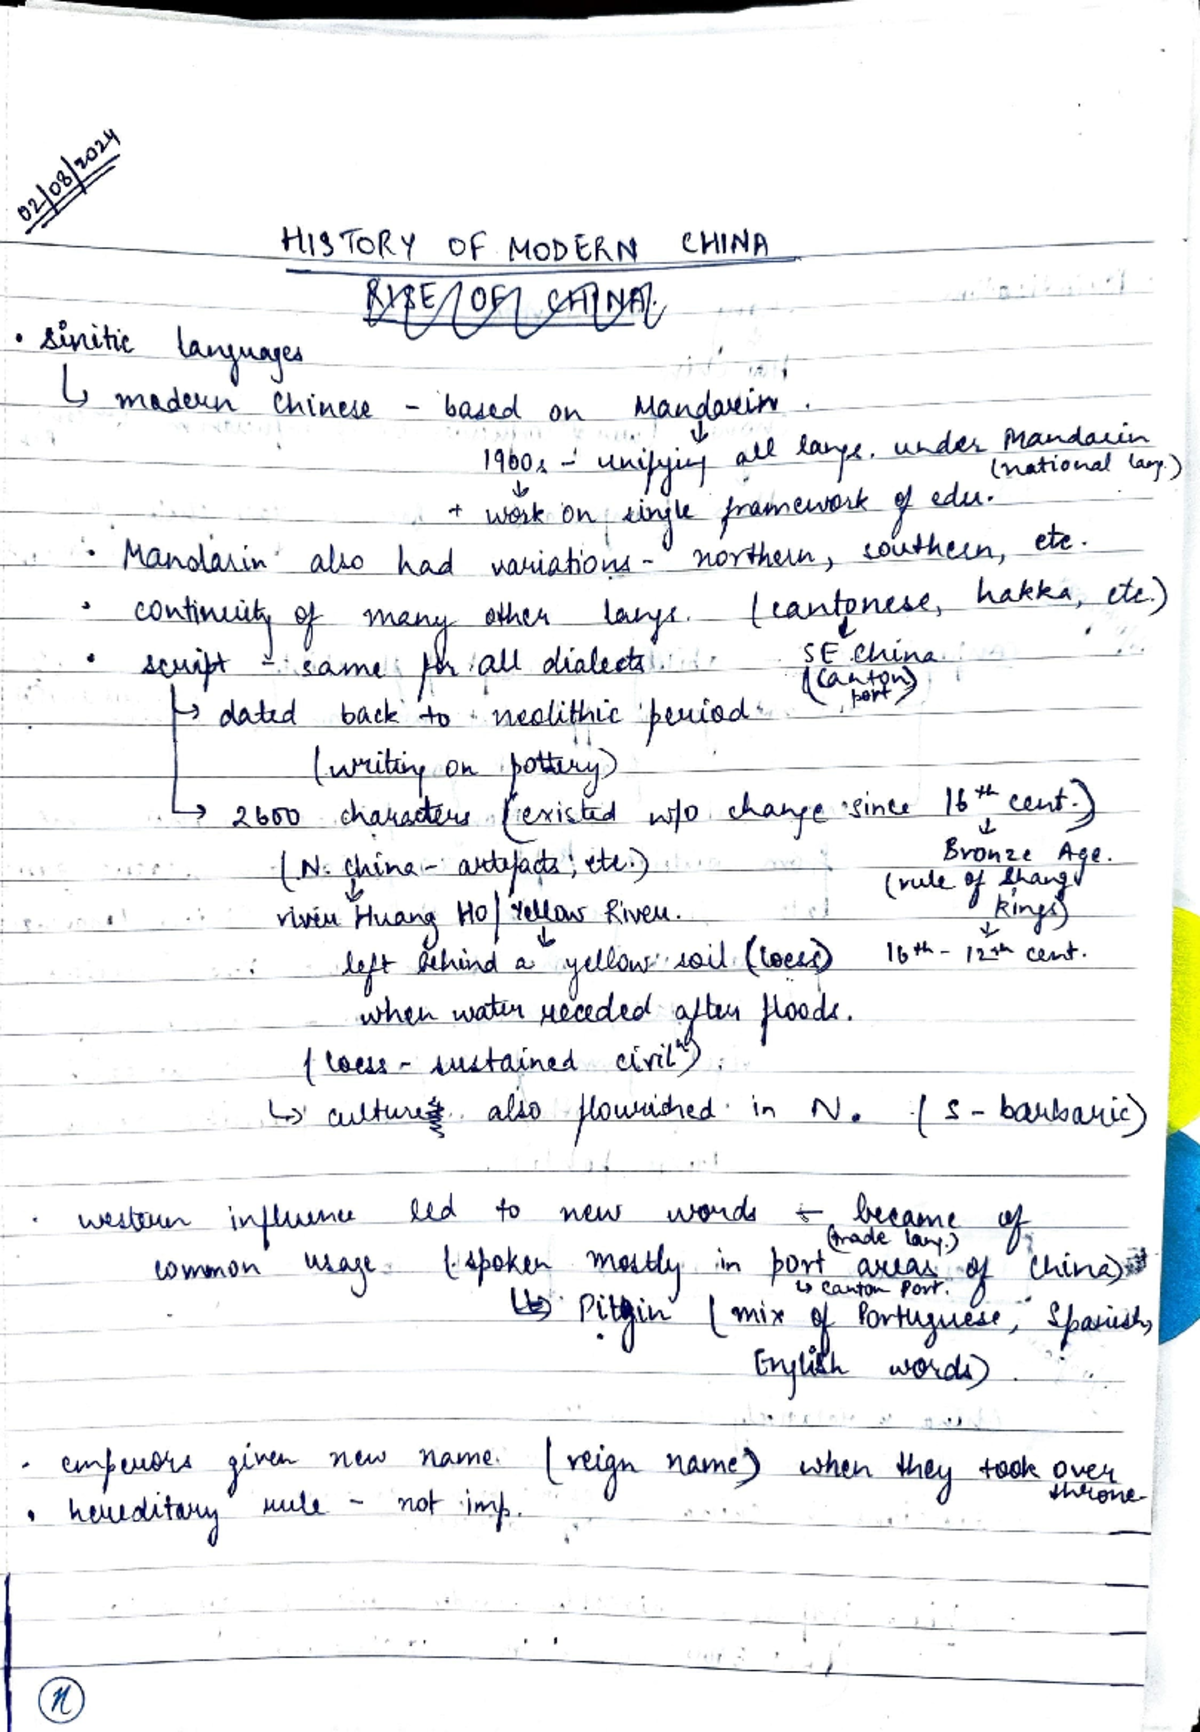 02/08/2024
HISTORY OF MODERN CHINA
RISE OF CHINA
• Sinitic languages
↳ modern Chinese - based on Mandarin.
↓
1900s - unifying all langs. under Mandarin
(national lang.)
↓
+ work on single framework of edu.
• Mandarin also had variations - northern, southern, etc.
• continuity of many other langs. (cantonese, hakka, etc.)
↓
• script - same for all dialects SE China
(Canton port)
↳ dated back to neolithic period
(writing on pottery)
↳ 2600 characters (existed w/o change since 16th cent.)
↓
(N. China - artefacts, etc.) Bronze Age.
(rule of Shang Kings)
↓
river Huang Ho/Yellow River.
↓
left behind a yellow soil (loess) 16th - 12th cent.
when water receded after floods.
(loess - sustained civiln)
↳ culture also flourished in N. (S - barbaric)
• western influence led to new words - became of
(trade lang.)
common usage (spoken mostly in port areas of China)
↳ Canton Port.
↳ Pitgin (mix of Portuguese, Spanish,
English words)
• emperors given new name (reign name) when they took over
throne
• hereditary rule - not imp.
n